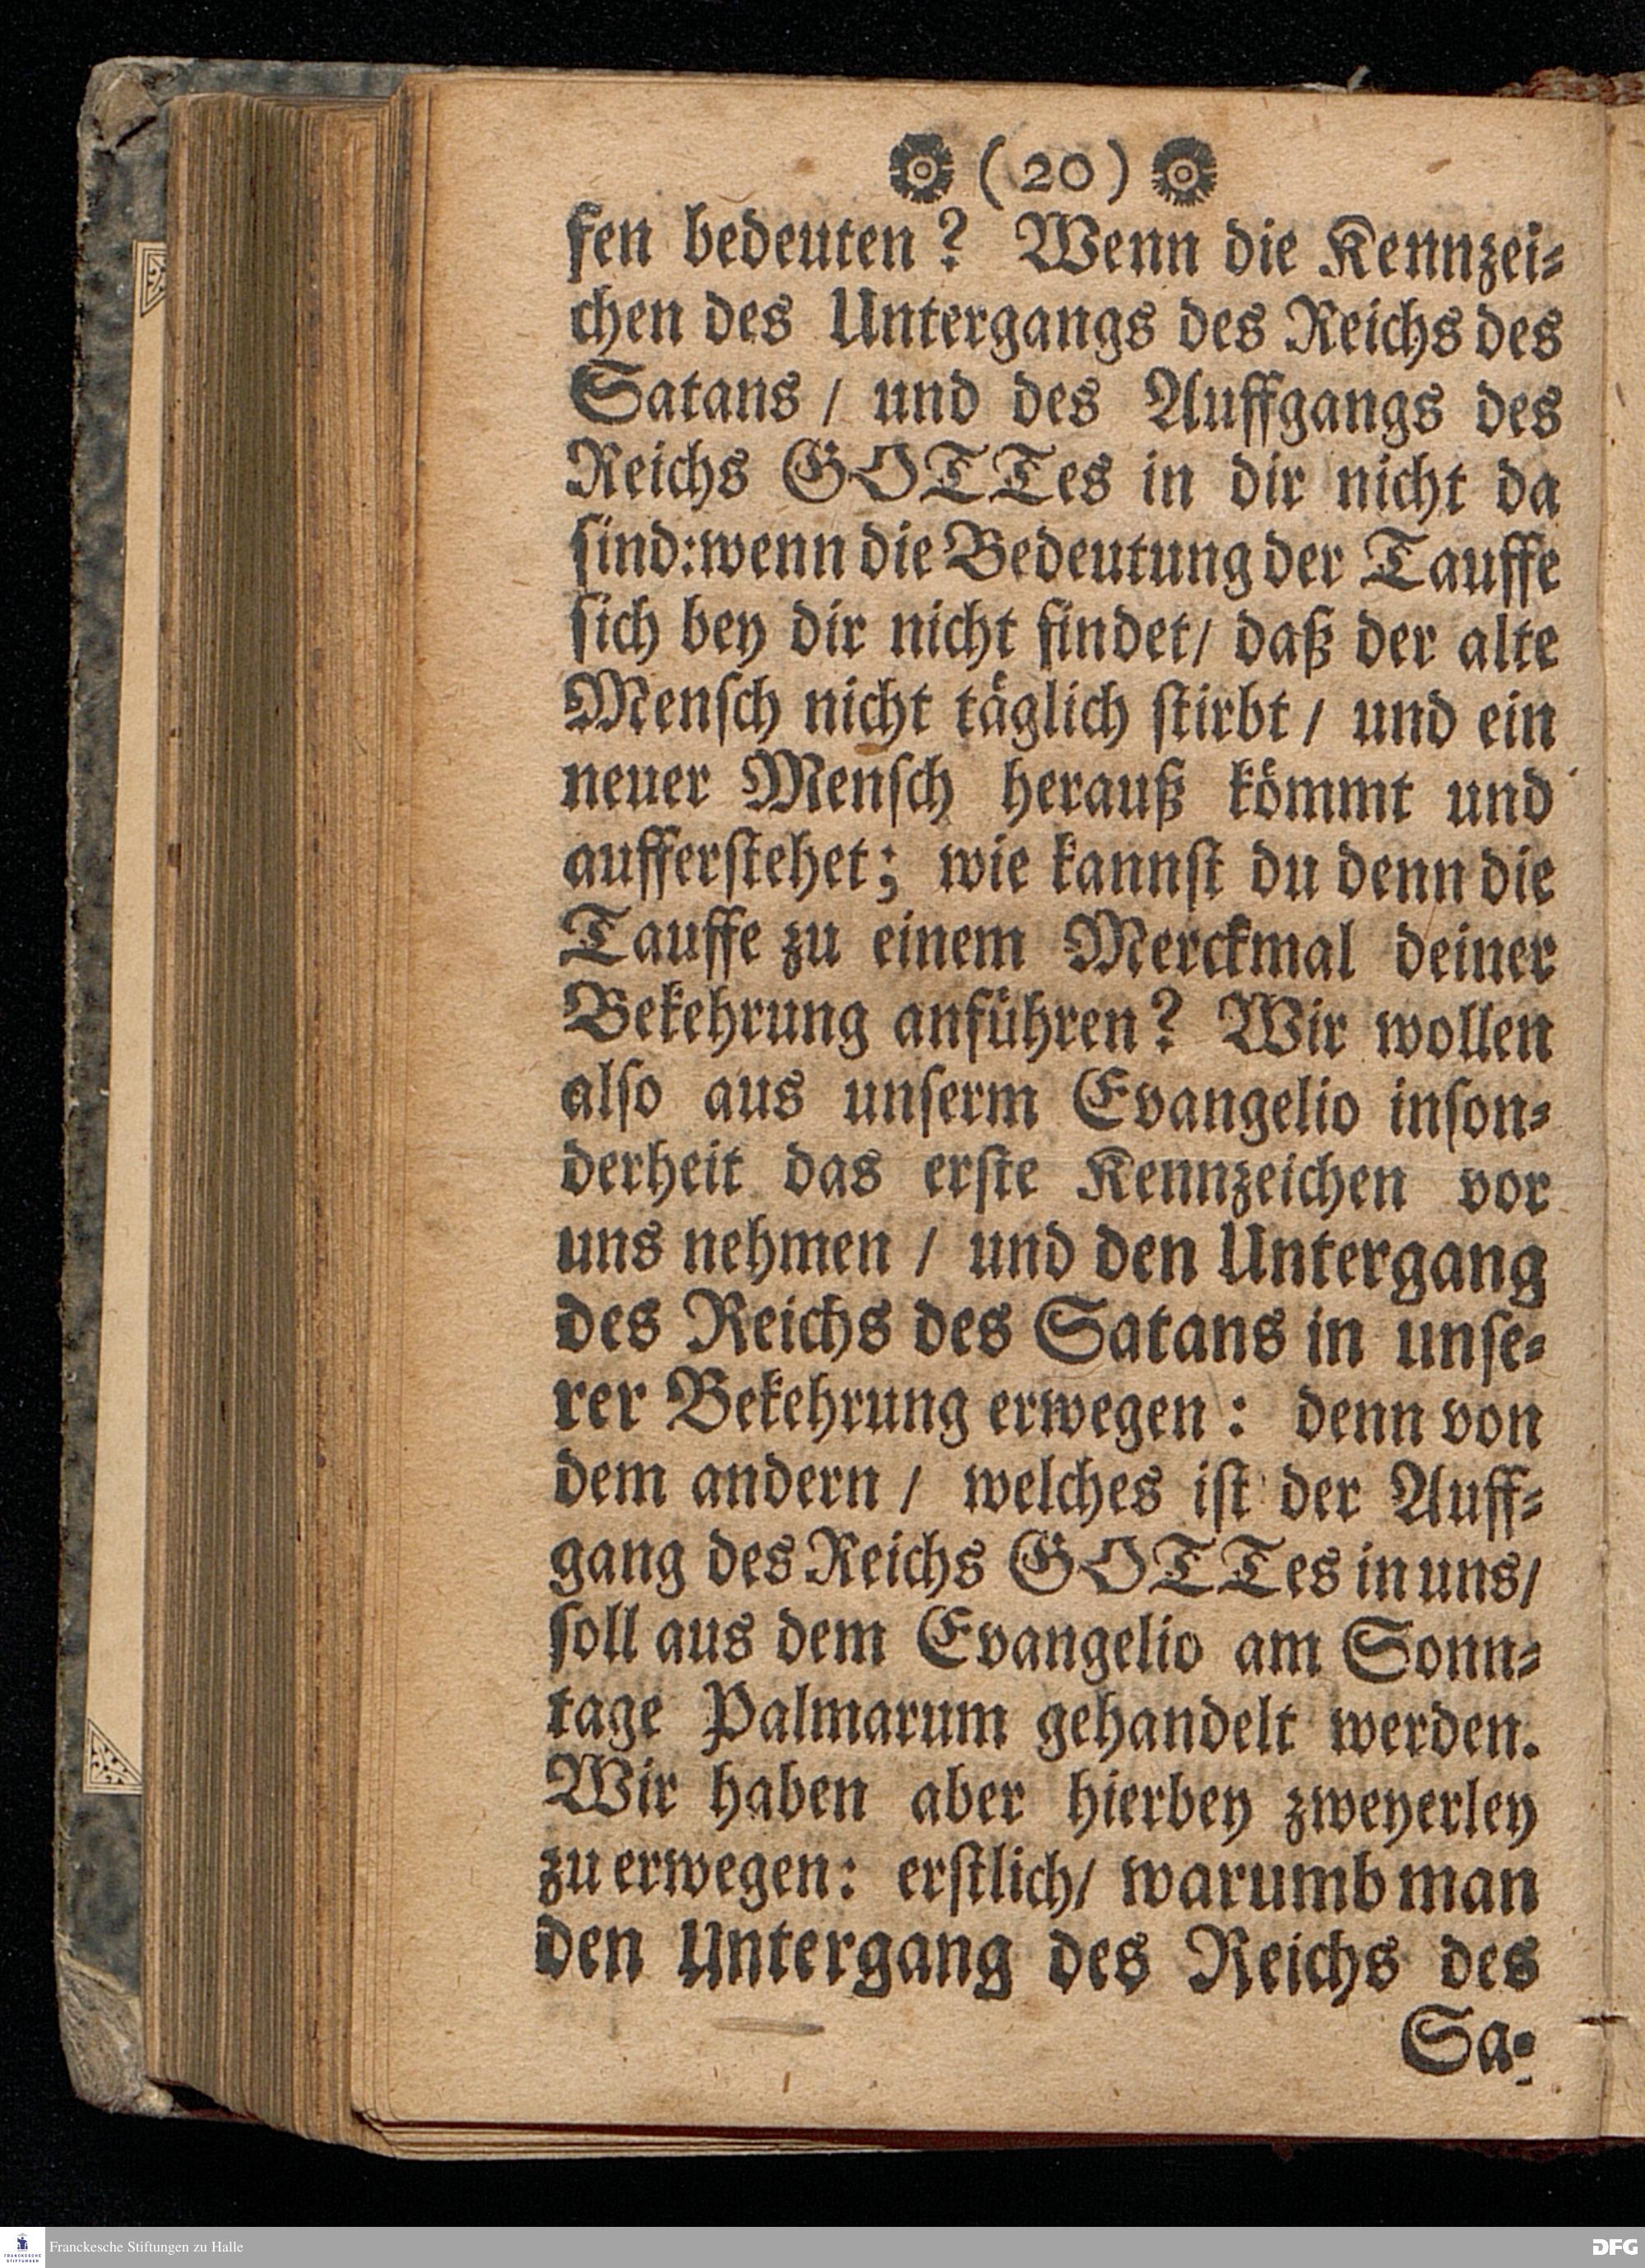 (20)
fen bedeuten? Wenn die Kennzei⸗
chen des Untergangs des Reichs des
Satans / und des Auffgangs des
Reichs GOTTes in dir nicht da
ſind: wenn die Bedeutung der Tauffe
ſich bey dir nicht findet / daß der alte
Menſch nicht täglich ſtirbt / und ein
neuer Menſch herauß kömmt und
aufferſtehet; wie kannſt du denn die
Tauffe zu einem Merckmal deiner
Bekehrung anführen? Wir wollen
alſo aus unſerm Evangelio inſon⸗
derheit das erſte Kennzeichen vor
uns nehmen / und den Untergang
des Reichs des Satans in unſe⸗
rer Bekehrung erwegen: denn von
dem andern / welches iſt der Auff⸗
gang des Reichs GOTTes in uns /
ſoll aus dem Evangelio am Sonn⸗
tage Palmarum gehandelt werden.
Wir haben aber hierbey zweyerley
zu erwegen: erſtlich / warumb man
den Untergang des Reichs des
Sa⸗
Franckesche Stiftungen zu Halle
DFG